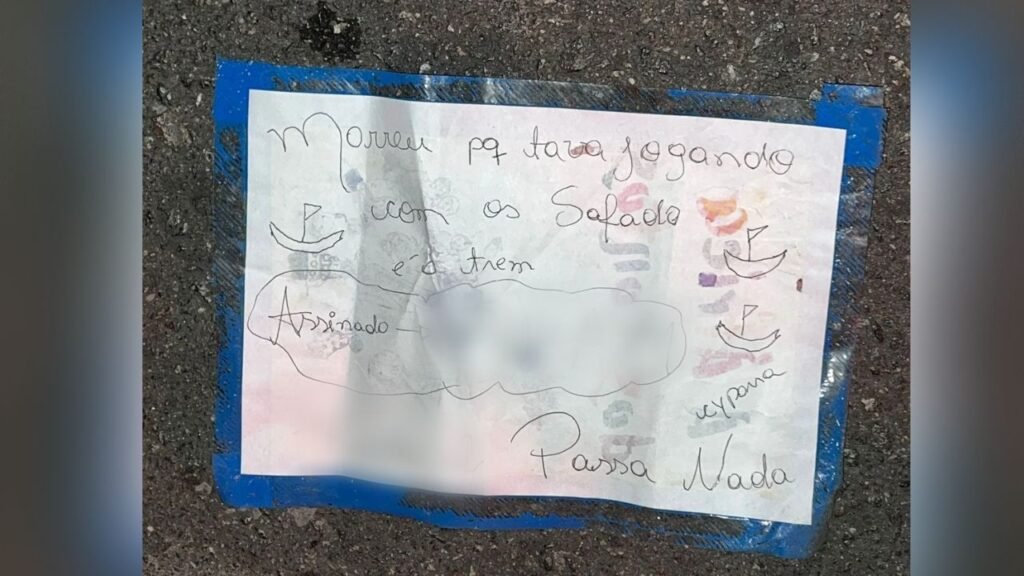 Morreu pq tava jogando
com os Safado
é o trem
Assinado
Passa Nada